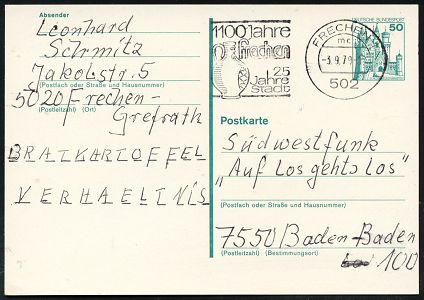 Absender
Leonhard
Schmitz
Jakobstr. 5
(Postfach oder Straße und Hausnummer)
5020 Frechen-
(Postleitzahl) (Ort)
Grefrath
BRATKARTOFFEL
VERHAELTNIS
1100 Jahre
Frechen
25
Jahre
Stadt
FRECHEN
mc
-3.9.79
502
DEUTSCHE BUNDESPOST
50
Postkarte
Südwestfunk
„Auf Los gehts los"
(Postfach oder Straße und Hausnummer)
7550 Baden-Baden
(Postleitzahl) (Bestimmungsort)
100